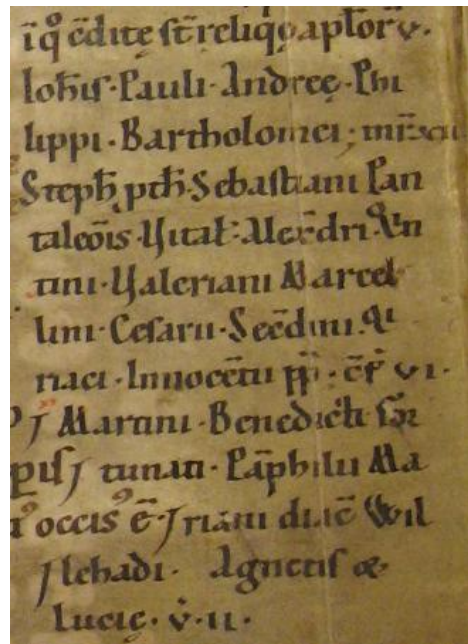 ī qͦ ꝯdite st̄ reliq̢ apl̄oꝝ v.
Ioħis · Pauli · Andreę · Phi
lippi · Bartholomei ;
Steph̄ pth̄ · Sebastiani Pan
taleōis · Vital · Alex̄dri · Vn
tini · Valeriani Marcel
lini · Cesarii · Secd̄ini · Qi
riaci · Innocētii pp̄ · ꝯf̄ vi ·
Martini · Benedicti
tunati · Pāphilii Ma
occisꝰ ē · riani diac̄ Wil
lehadi · Agnetis &
Lucię · v̄ · ii ·